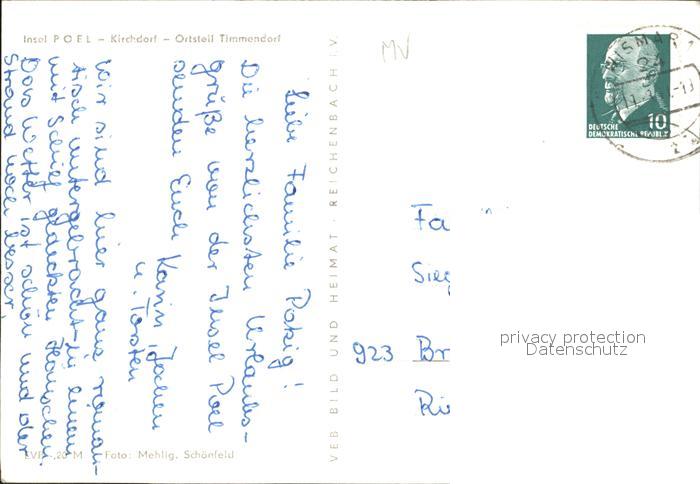 Insel POEL – Kirchdorf – Ortsteil Timmendorf
Liebe Familie
Die herzlichsten Urlaubs-
grüße von der Insel Poel
senden Euch Karin, Jochen
u. Torsten
Wir sind hier ganz roman-
tisch untergebracht – in einem
mit Schilf gedeckten Häuschen.
Das Wetter ist schön und der
Strand noch besser
EVP –,20 M
Foto: Mehlig, Schönfeld
VEB BILD UND HEIMAT · REICHENBACH I. V.
MV
WISMAR
DEUTSCHE
DEMOKRATISCHE REPUBLIK
10
Fa
Sieg
923 Br
privacy protection
Datenschutz